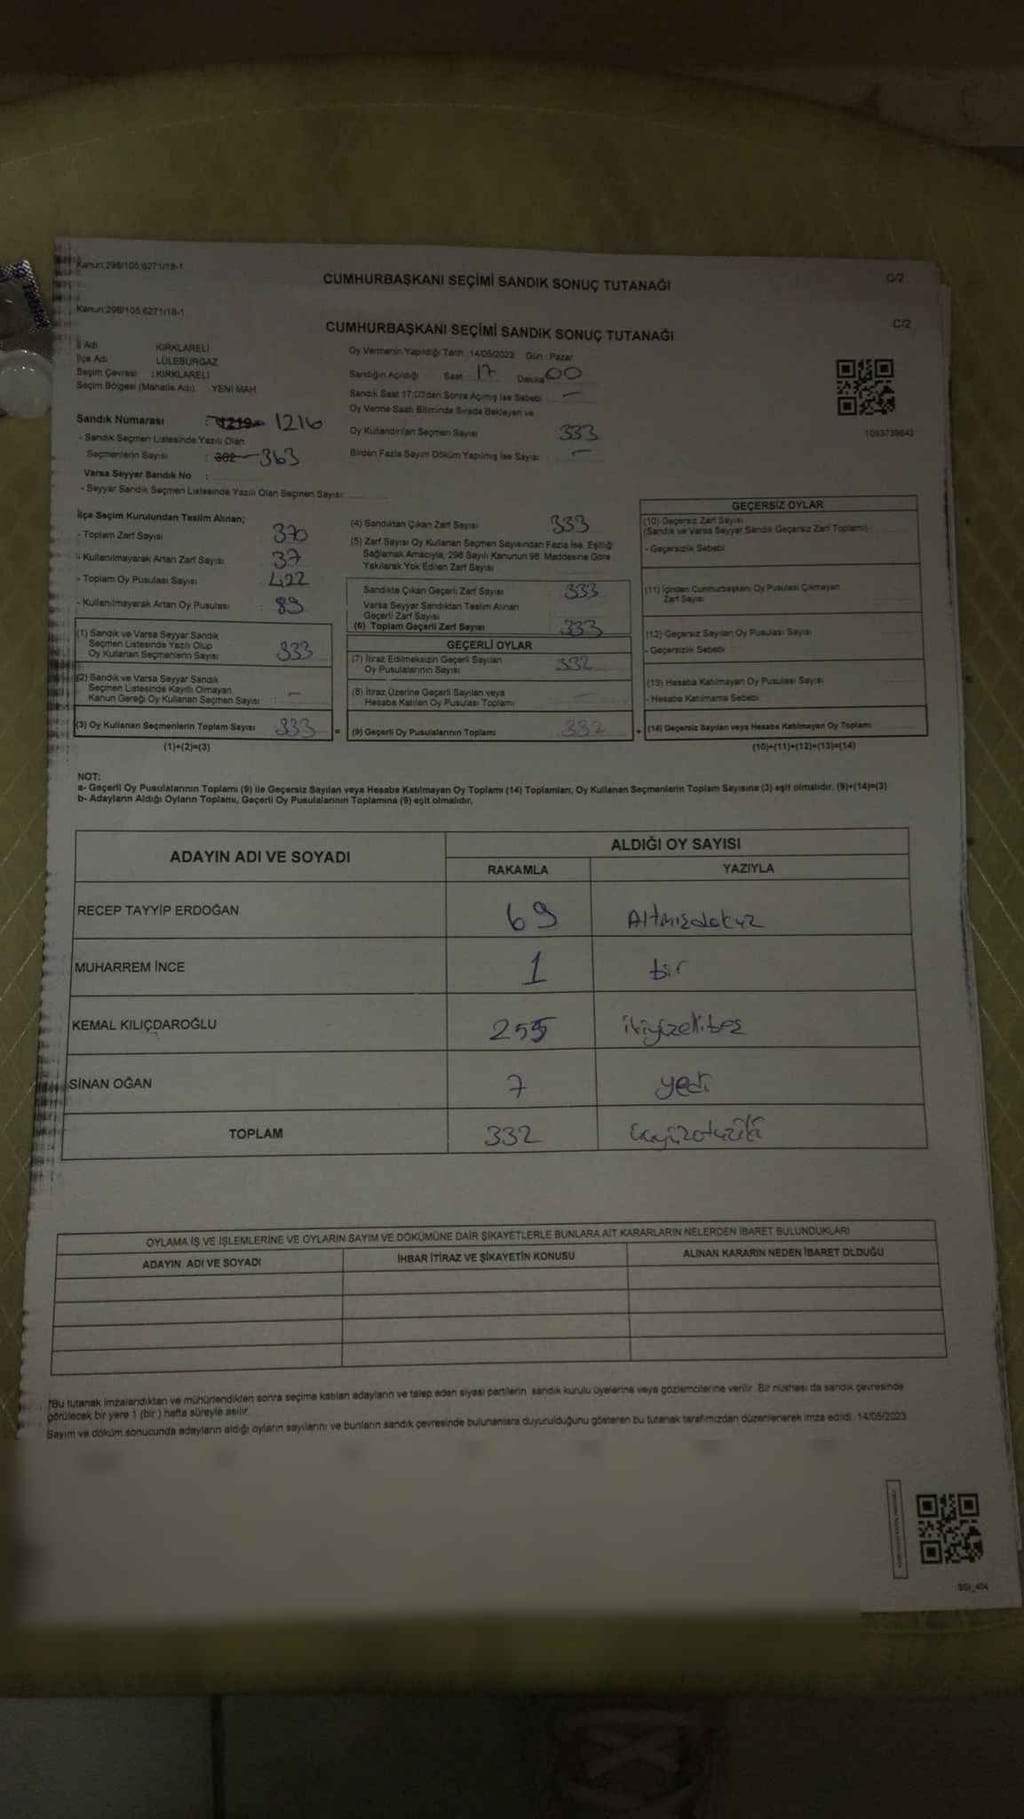 Kanun:298/105,6271/18-1
CUMHURBAŞKANI SEÇİMİ SANDIK SONUÇ TUTANAĞI
C/2
Kanun:298/105,6271/18-1
CUMHURBAŞKANI SEÇİMİ SANDIK SONUÇ TUTANAĞI
C/2
İl Adı KIRKLARELİ
İlçe Adı LÜLEBURGAZ
Seçim Çevresi :KIRKLARELİ
Seçim Bölgesi (Mahalle Adı) YENİ MAH
Sandık Numarası 1219 1216
- Sandık Seçmen Listesinde Yazılı Olan
Seçmenlerin Sayısı : 382 363
Varsa Seyyar Sandık No :
- Seyyar Sandık Seçmen Listesinde Yazılı Olan Seçmen Sayısı
Oy Vermenin Yapıldığı Tarih :14/05/2023 Gün : Pazar
Sandığın Açıldığı Saat 17 Dakika 00
Sandık Saat 17:00'den Sonra Açılmış İse Sebebi —
Oy Verme Saati Bitiminde Sırada Bekleyen ve
Oy Kullandırılan Seçmen Sayısı 333
Birden Fazla Sayım Döküm Yapılmış İse Sayısı —
1093739843
İlçe Seçim Kurulundan Teslim Alınan;
- Toplam Zarf Sayısı 370
- Kullanılmayarak Artan Zarf Sayısı 37
- Toplam Oy Pusulası Sayısı 422
- Kullanılmayarak Artan Oy Pusulası : 89
(1) Sandık ve Varsa Seyyar Sandık
Seçmen Listesinde Yazılı Olup
Oy Kullanan Seçmenlerin Sayısı 333
(2) Sandık ve Varsa Seyyar Sandık
Seçmen Listesinde Kayıtlı Olmayan
Kanun Gereği Oy Kullanan Seçmen Sayısı —
(3) Oy Kullanan Seçmenlerin Toplam Sayısı 333
(1)+(2)=(3)
(4) Sandıktan Çıkan Zarf Sayısı 333
(5) Zarf Sayısı Oy Kullanan Seçmen Sayısından Fazla İse, Eşitliği
Sağlamak Amacıyla, 298 Sayılı Kanunun 98. Maddesine Göre
Yakılarak Yok Edilen Zarf Sayısı
Sandıkta Çıkan Geçerli Zarf Sayısı 333
Varsa Seyyar Sandıktan Teslim Alınan
Geçerli Zarf Sayısı
(6) Toplam Geçerli Zarf Sayısı 333
GEÇERLİ OYLAR
(7) İtiraz Edilmeksizin Geçerli Sayılan
Oy Pusulalarının Sayısı 332
(8) İtiraz Üzerine Geçerli Sayılan veya
Hesaba Katılan Oy Pusulası Toplamı
= (9) Geçerli Oy Pusulalarının Toplamı 332
GEÇERSİZ OYLAR
(10) Geçersiz Zarf Sayısı
(Sandık ve Varsa Seyyar Sandık Geçersiz Zarf Toplamı)
- Geçersizlik Sebebi
(11) İçinden Cumhurbaşkanı Oy Pusulası Çıkmayan
Zarf Sayısı
(12) Geçersiz Sayılan Oy Pusula Sayısı
- Geçersizlik Sebebi
(13) Hesaba Katılmayan Oy Pusulası Sayısı
- Hesaba Katılmama Sebebi
+ (14) Geçersiz Sayılan veya Hesaba Katılmayan Oy Toplamı
(10)+(11)+(12)+(13)=(14)
NOT:
a- Geçerli Oy Pusulalarının Toplamı (9) ile Geçersiz Sayılan veya Hesaba Katılmayan Oy Toplamı (14) Toplamları, Oy Kullanan Seçmenlerin Toplam Sayısına (3) eşit olmalıdır. (9)+(14)=(3)
b- Adayların Aldığı Oyların Toplamı, Geçerli Oy Pusulalarının Toplamına (9) eşit olmalıdır.
ADAYIN ADI VE SOYADI
ALDIĞI OY SAYISI
RAKAMLA YAZIYLA
RECEP TAYYİP ERDOĞAN 69 Altmışdokuz
MUHARREM İNCE 1 bir
KEMAL KILIÇDAROĞLU 255 ikiyüzellibeş
SİNAN OĞAN 7 yedi
TOPLAM 332 üçyüzotuziki
OYLAMA İŞ VE İŞLEMLERİNE VE OYLARIN SAYIM VE DÖKÜMÜNE DAİR ŞİKAYETLERLE BUNLARA AİT KARARLARIN NELERDEN İBARET BULUNDUKLARI
ADAYIN ADI VE SOYADI İHBAR İTİRAZ VE ŞİKAYETİN KONUSU ALINAN KARARIN NEDEN İBARET OLDUĞU
*Bu tutanak imzalandıktan ve mühürlendikten sonra seçime katılan adayların ve talep eden siyasi partilerin sandık kurulu üyelerine veya gözlemcilerine verilir. Bir nüshası da sandık çevresinde
görülecek bir yere 1 (bir) hafta süreyle asılır.
Sayım ve döküm sonucunda adayların aldığı oyların sayılarını ve bunların sandık çevresinde bulunanlara duyurulduğunu gösteren bu tutanak tarafımızdan düzenlenerek imza edildi. 14/05/2023